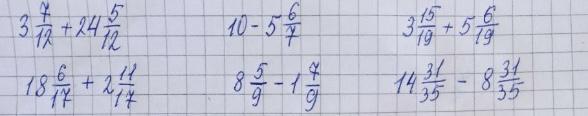 3 7/12 + 24 5/12    10 - 5 6/7    3 15/19 + 5 6/19
18 6/17 + 2 11/17    8 5/9 - 1 7/9    14 31/35 - 8 31/35